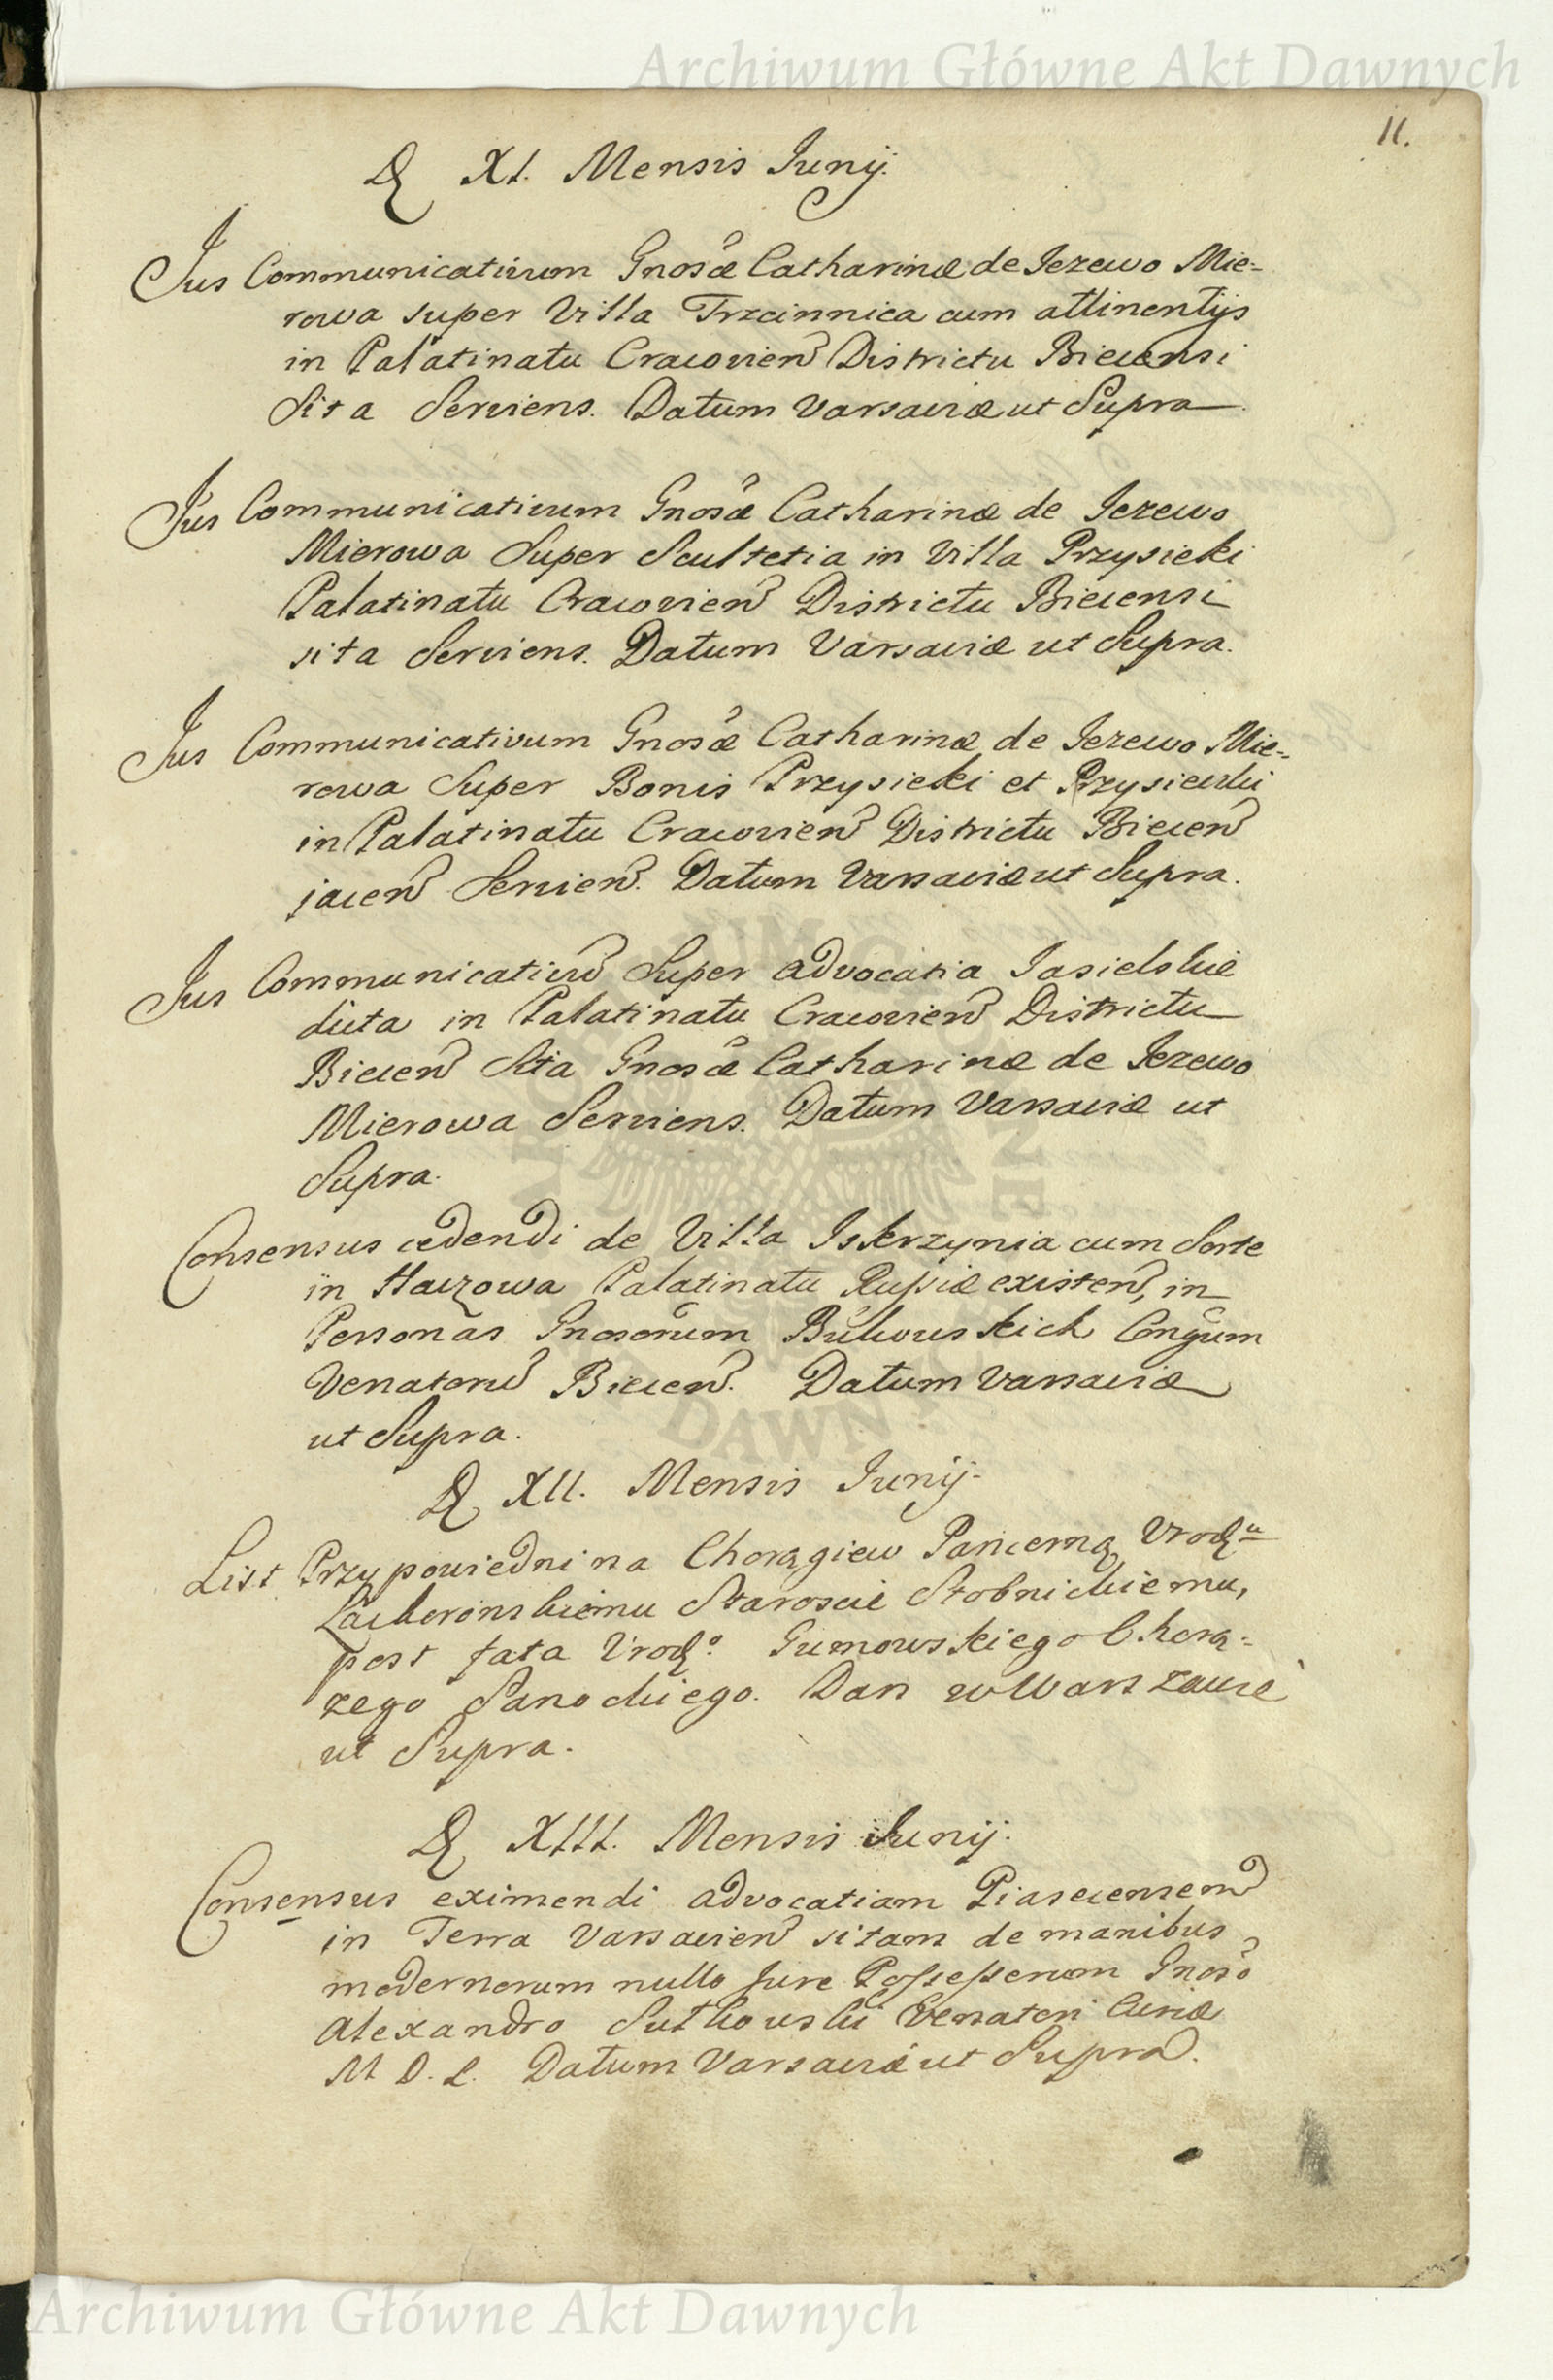 Archiwum Główne Akt Dawnych
11.
D. XI. Mensis Junij.
Jus Communicativum Gnosæ Catharinæ de Jezewo Mie=
rowa super Villa Trzcinnica cum attinentijs
in Palatinatu Cracovien Districtu Biecensi
Sita Serviens. Datum Varsaviæ ut Supra
Jus Communicativum Gnosæ Catharinæ de Jezewo
Mierowa Super Scultetia in Villa Przysieki
Palatinatu Cracovien Districtu Biecensi
sita Serviens. Datum Varsaviæ ut Supra.
Jus Communicativum Gnosæ Catharinæ de Jezewo Mie=
rowa Super Bonis Przysieki et Przysiecki
in Palatinatu Cracovien Districtu Biecen
jacen Servien. Datum Varsaviæ ut Supra.
Jus Communicativu Super advocatia Jasielskie
dicta in Palatinatu Cracovien Districtu
Biecen Sita Gnosæ Catharinæ de Jezewo
Mierowa Serviens. Datum Varsaviæ ut
Supra.
Consensus cedendi de Villa Iskrzynia cum Sorte
in Haczowa Palatinatu Russiæ existen, in
Personas Gnosorum Bukowskich Congum
Venatoru Biecen. Datum Varsaviæ
ut Supra.
D. XII. Mensis Junij.
List Przypowiedni na Chorągiew Pancerną Urodzu
Lanckoronskiemu Staroscie Stobnickiemu,
post fata Urodzo. Gumowskiego Chorą=
zego Sanockiego. Dan w Warszawie
ut Supra.
D. XIII. Mensis Junij.
Consensus eximendi advocatiam Piasecensem
in Terra Varsavien sitam de manibus
modernorum nullo Jure Possessorum Gnoso
Alexandro Sutkowski Venatori Curiæ
M D. L. Datum Varsaviæ ut Supra.
Archiwum Główne Akt Dawnych